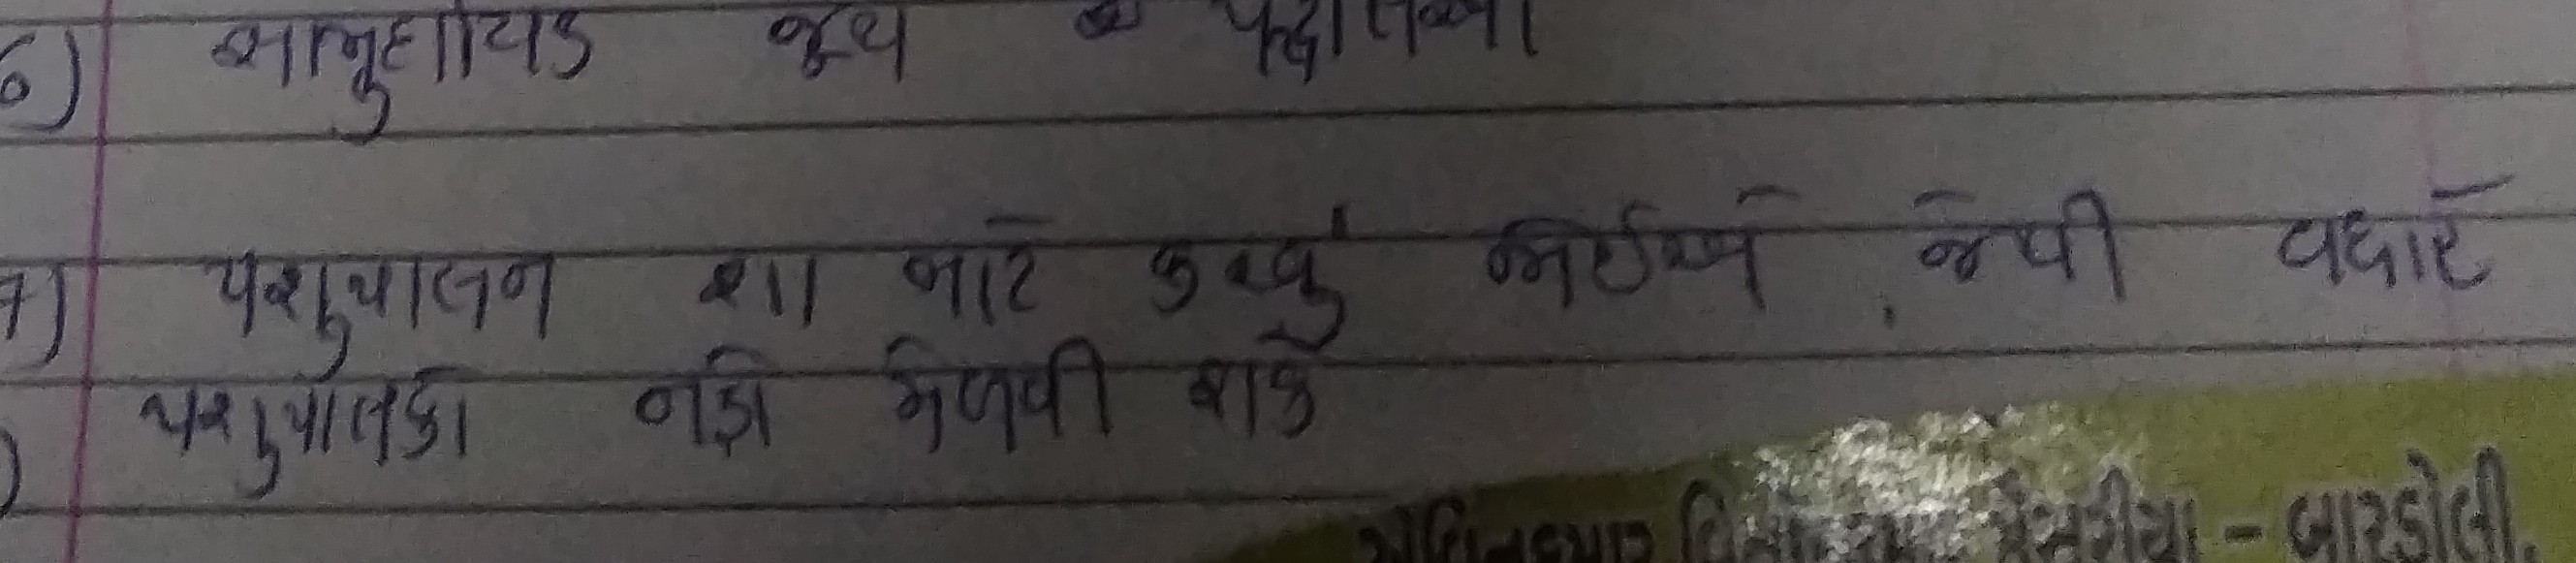 6) સામુદાયિક જૂથ
7) પશુપાલન શા માટે કરવું જોઈએ, જેથી વધારે
પશુપાલકો નફો મેળવી શકે
- બારડોલી.